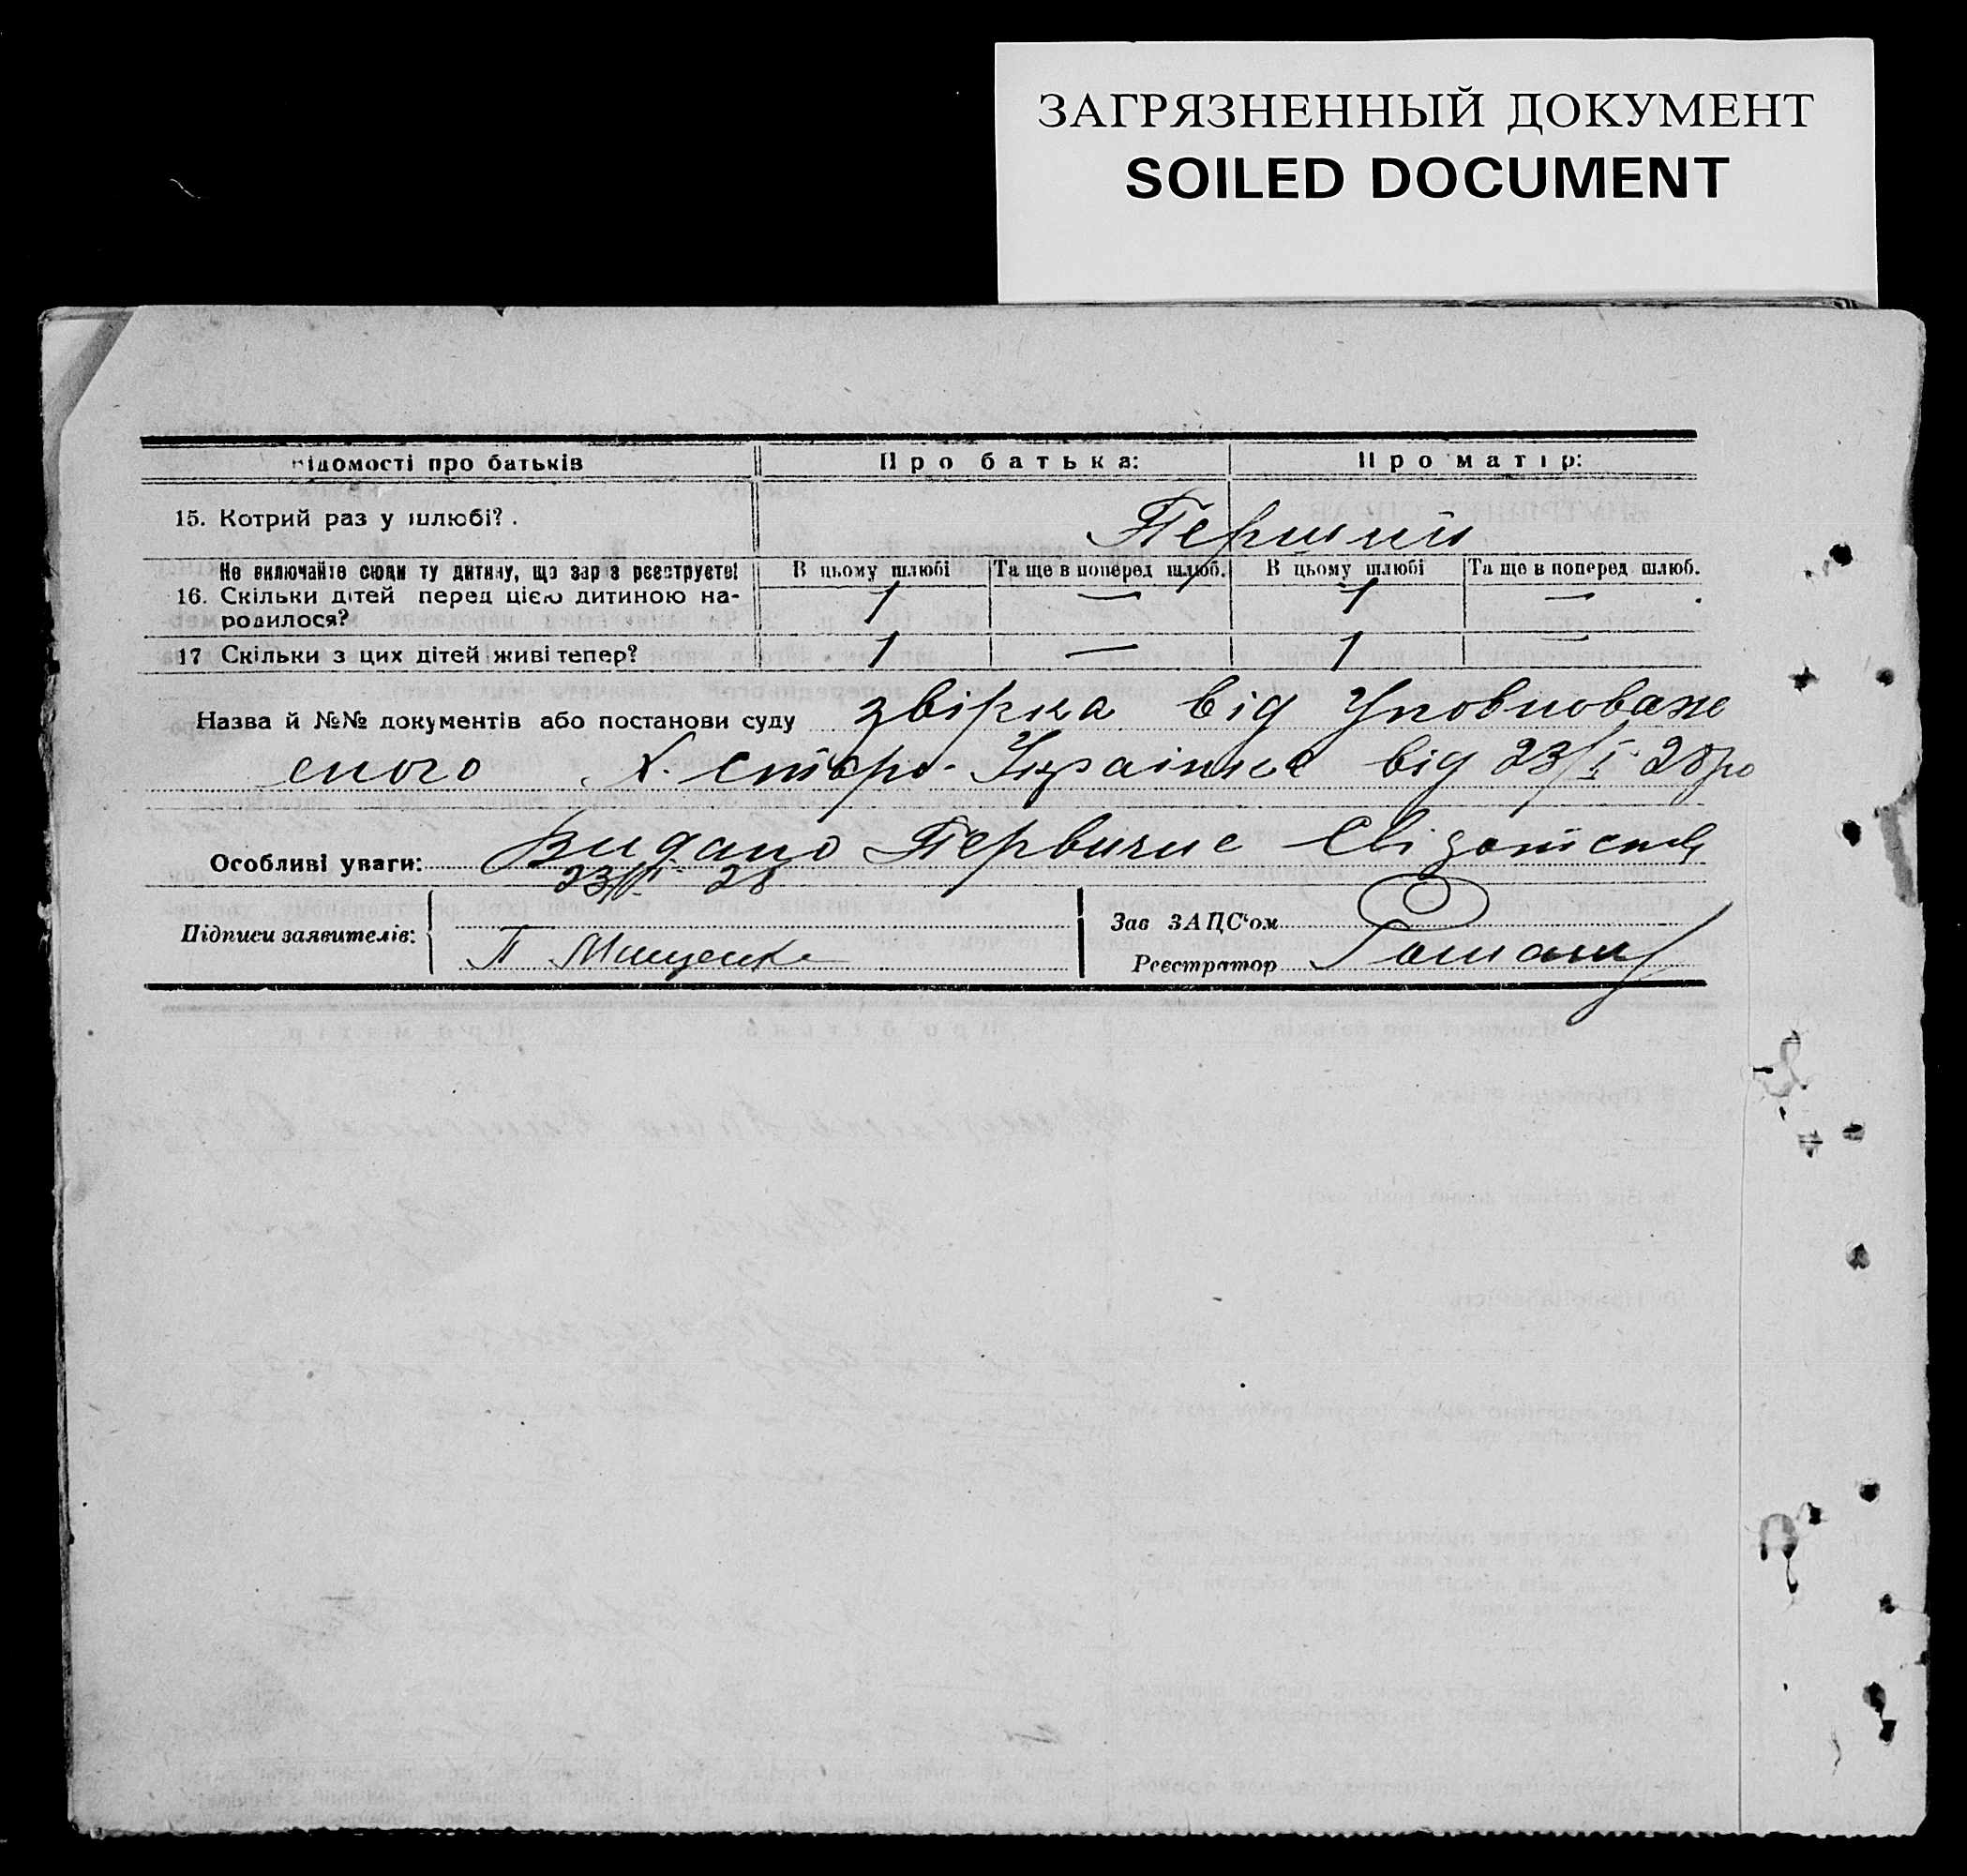 ЗАГРЯЗНЕННЫЙ ДОКУМЕНТ
SOILED DOCUMENT
ідомості про батьків Про батька: Про матір:
15. Котрий раз у шлюбі? . Перший
Не включайте сюди ту дитину, що зараз реєструєте! В цьому шлюбі Та ще в поперед шлюб. В цьому шлюбі Та ще в поперед шлюб.
16. Скільки дітей перед цією дитиною на-
родилося? 1 — 1 —
17 Скільки з цих дітей живі тепер? 1 — 1 —
Назва й №№ документів або постанови суду звірка від Уповноваже
еного Х. Старо-Українка від 23/I 28 ро
Особливі уваги: Видано Первичне
23/I 28
Підписи заявителів: Зав ЗАПС'ом
П Мищенко Реєстратор